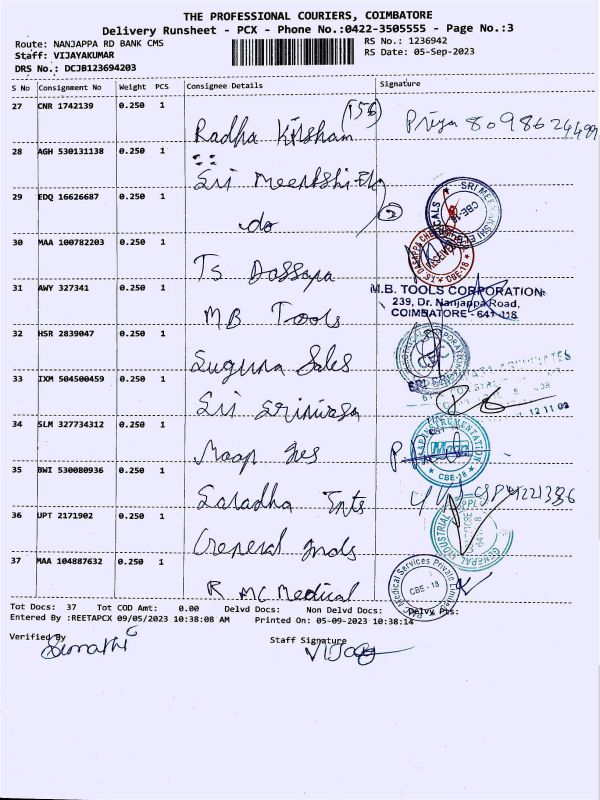 THE PROFESSIONAL COURIERS, COIMBATORE
Delivery Runsheet - PCX - Phone No.:0422-3505555 - Page No.:3
Route: NANJAPPA RD BANK CMS
RS No.: 1236942
Staff: VIJAYAKUMAR
RS Date: 05-Sep-2023
DRS No.: DCJB123694203
S No Consignment No Weight PCS Consignee Details Signature
27 CNR 1742139 0.250 1 Radha Krisham (156) Priya 8098624499
28 AGH 530131138 0.250 1 Sri Meenkshi
29 EDQ 16626687 0.250 1 do 2
SRI MEENAKSHI CBE-18
30 MAA 100782203 0.250 1 TS Dassapa
T.S. DASAPPA CHETTIAR CBE-18
31 AWY 327341 0.250 1 MB Tools
M.B. TOOLS CORPORATION
239, Dr. Nanjappa Road,
COIMBATORE - 641 018
32 HSR 2839047 0.250 1 Suguna Sales
33 IXM 504500459 0.250 1 Sri Srinivasa
12 11 03
34 SLM 327734312 0.250 1 Maap Ins
INSTRUMENTATION CBE-18
35 BWI 530080936 0.250 1 Saradha Ents
36 UPT 2171902 0.250 1 General Inds
GENERAL INDUSTRIAL
37 MAA 104887632 0.250 1 R MC Medical
RMC Medical Services Private Limited CBE-18
Tot Docs: 37 Tot COD Amt: 0.00 Delvd Docs: Non Delvd Docs: Delvy Pts:
Entered By :REETAPCX 09/05/2023 10:38:08 AM Printed On: 05-09-2023 10:38:14
Verified By Staff Signature
Sumathi